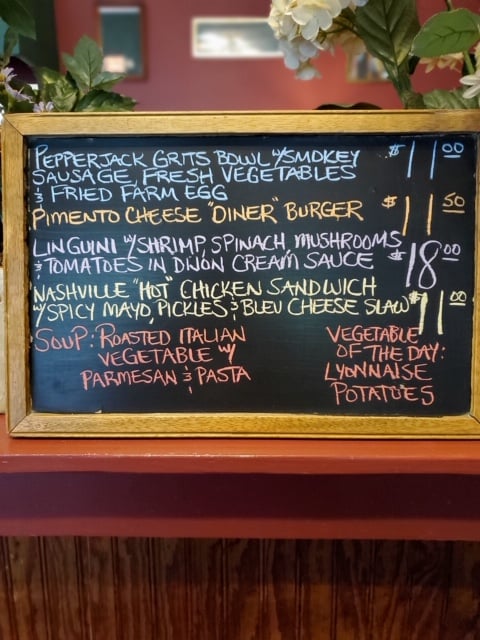 PEPPERJACK GRITS BOWL W/SMOKEY $11.00
SAUSAGE, FRESH VEGETABLES
& FRIED FARM EGG
PIMENTO CHEESE "DINER" BURGER $11.50
LINGUINI W/SHRIMP, SPINACH, MUSHROOMS
& TOMATOES IN DIJON CREAM SAUCE $18.00
NASHVILLE "HOT" CHICKEN SANDWICH
W/SPICY MAYO, PICKLES & BLEU CHEESE SLAW $11.00
SOUP: ROASTED ITALIAN
VEGETABLE W/
PARMESAN & PASTA
VEGETABLE
OF THE DAY:
LYONNAISE
POTATOES